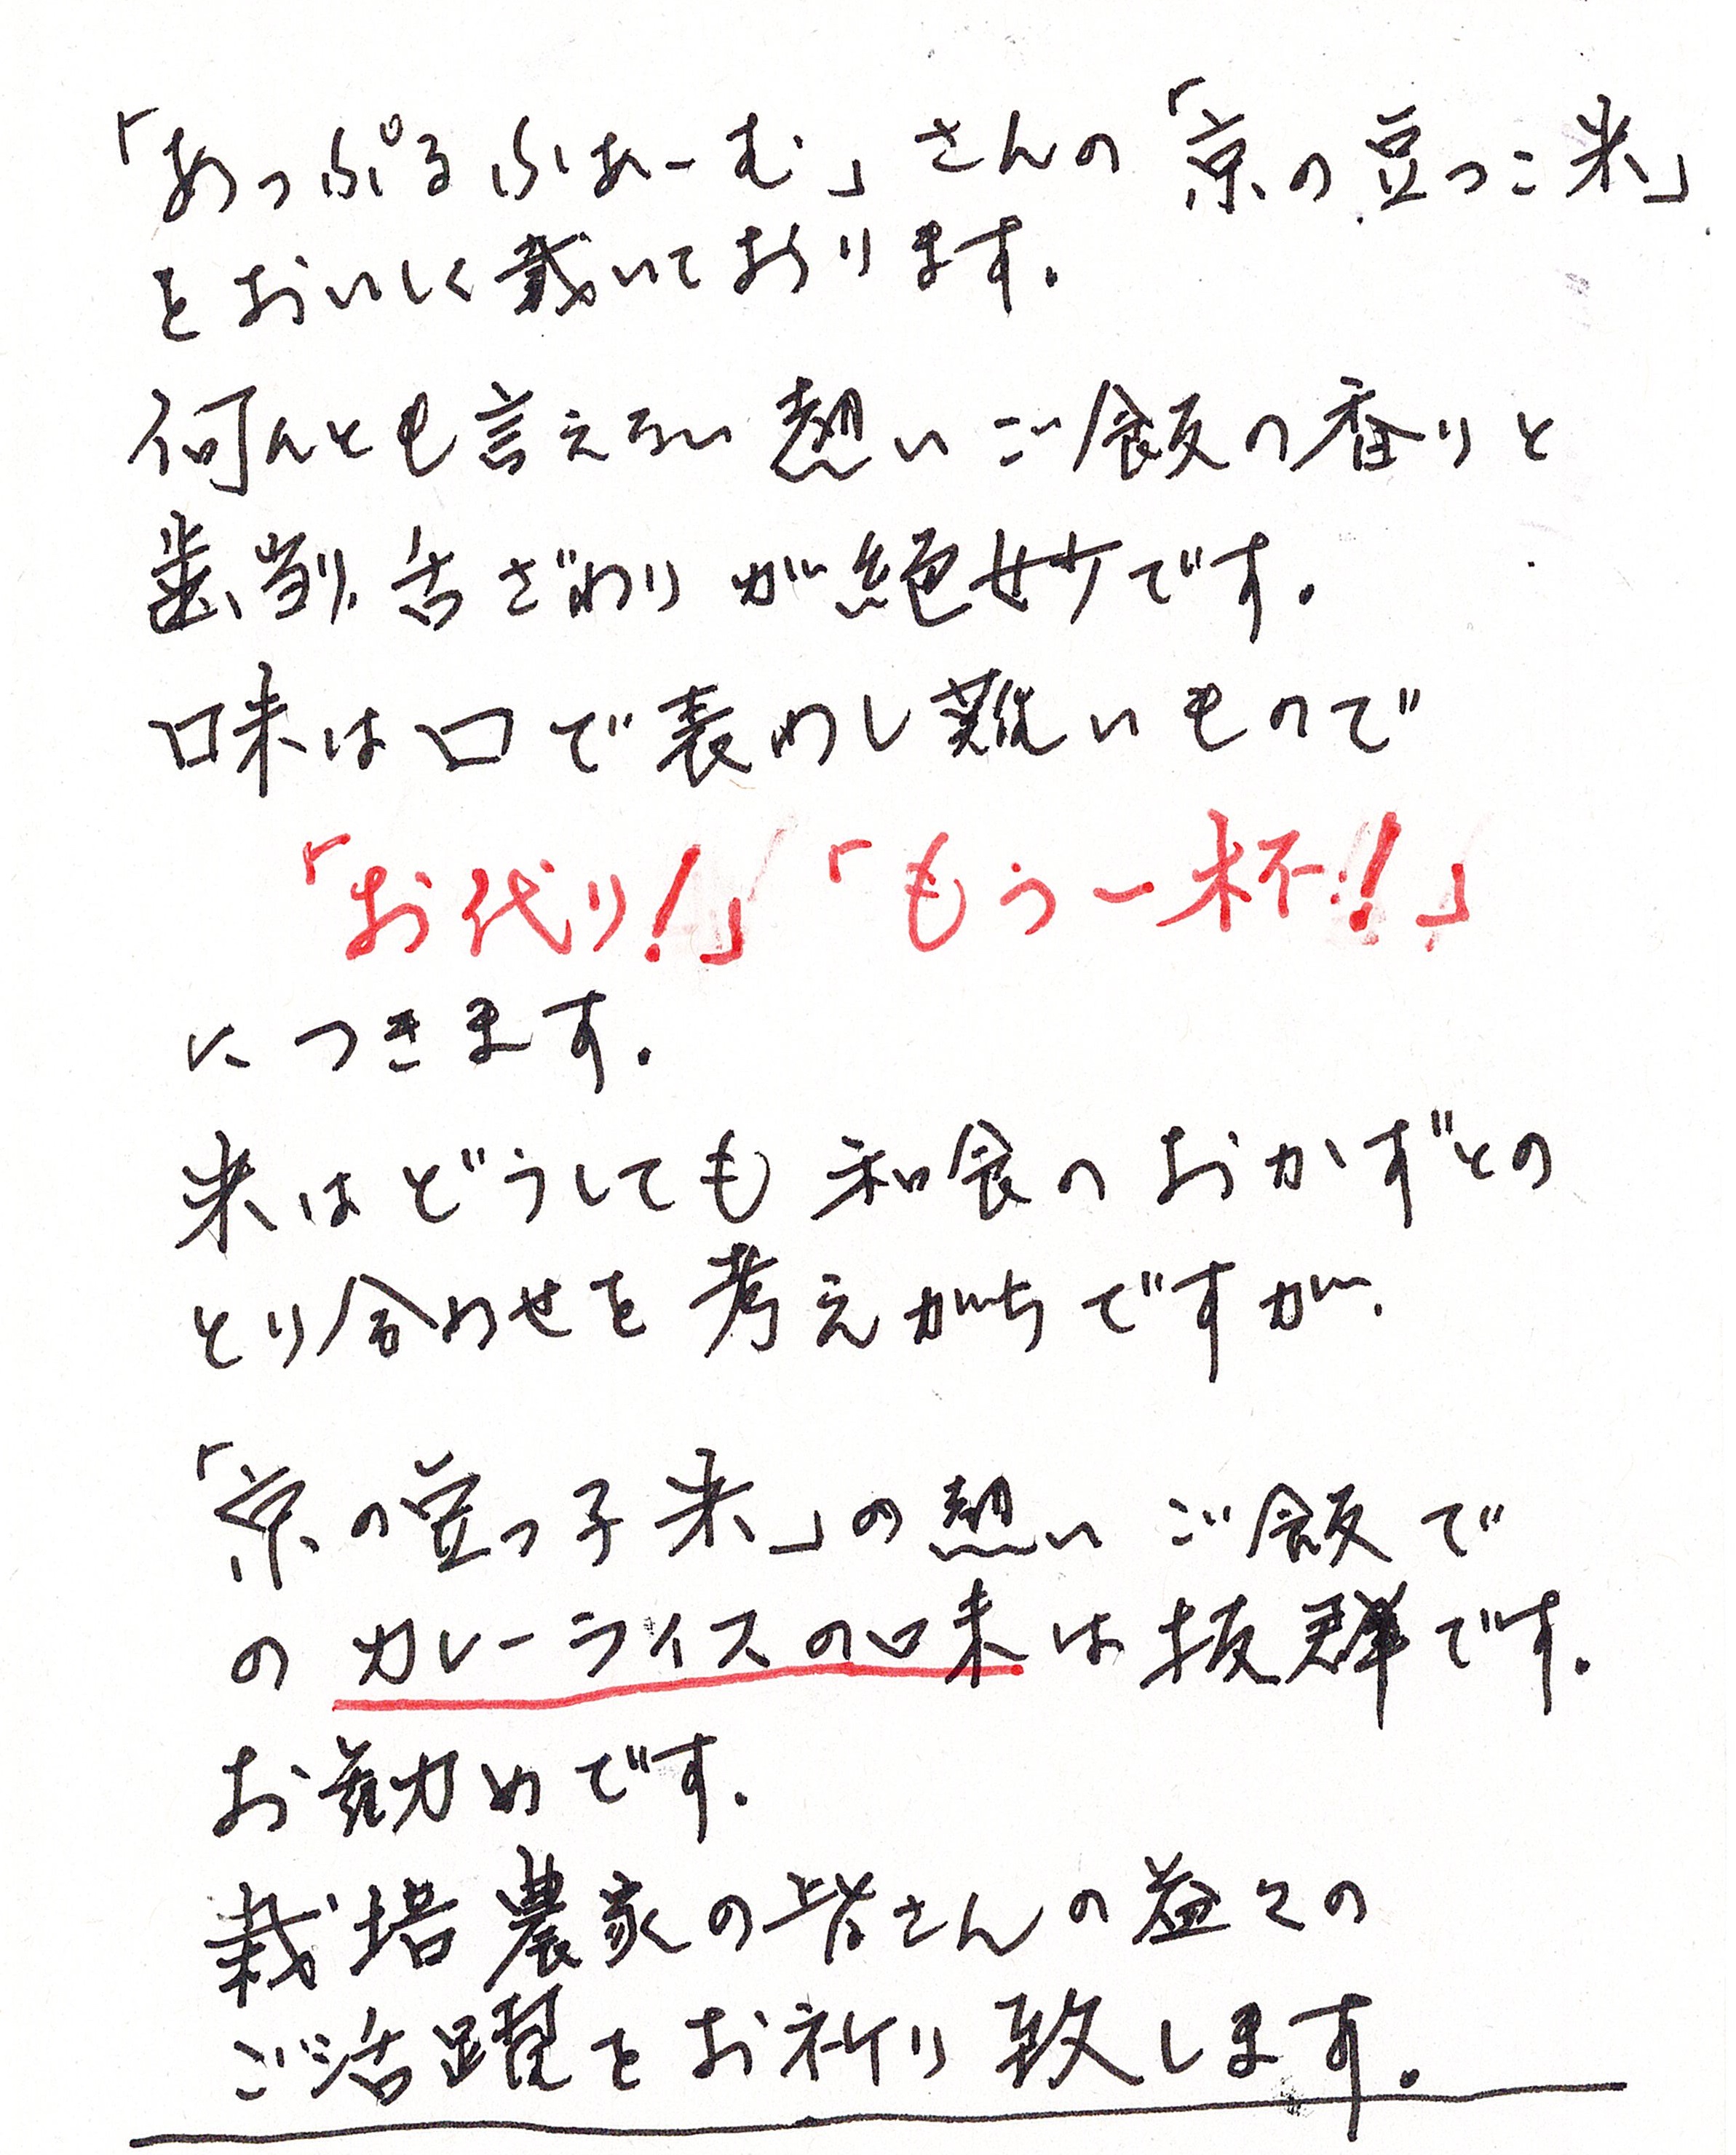 「あっぷるふぁーむ」さんの「京の豆っこ米」
をおいしく戴いております。
何んとも言えない熱いご飯の香りと
歯当り、舌ざわりが絶妙です。
味は口で表わし難いもので
「お代り!」「もう一杯!」
につきます。
米はどうしても和食のおかずとの
とり合わせを考えがちですが、
「京の豆っ子米」の熱いご飯で
のカレーライスの味は抜群です。
お勧めです。
栽培農家の皆さんの益々の
ご活躍をお祈り致します。